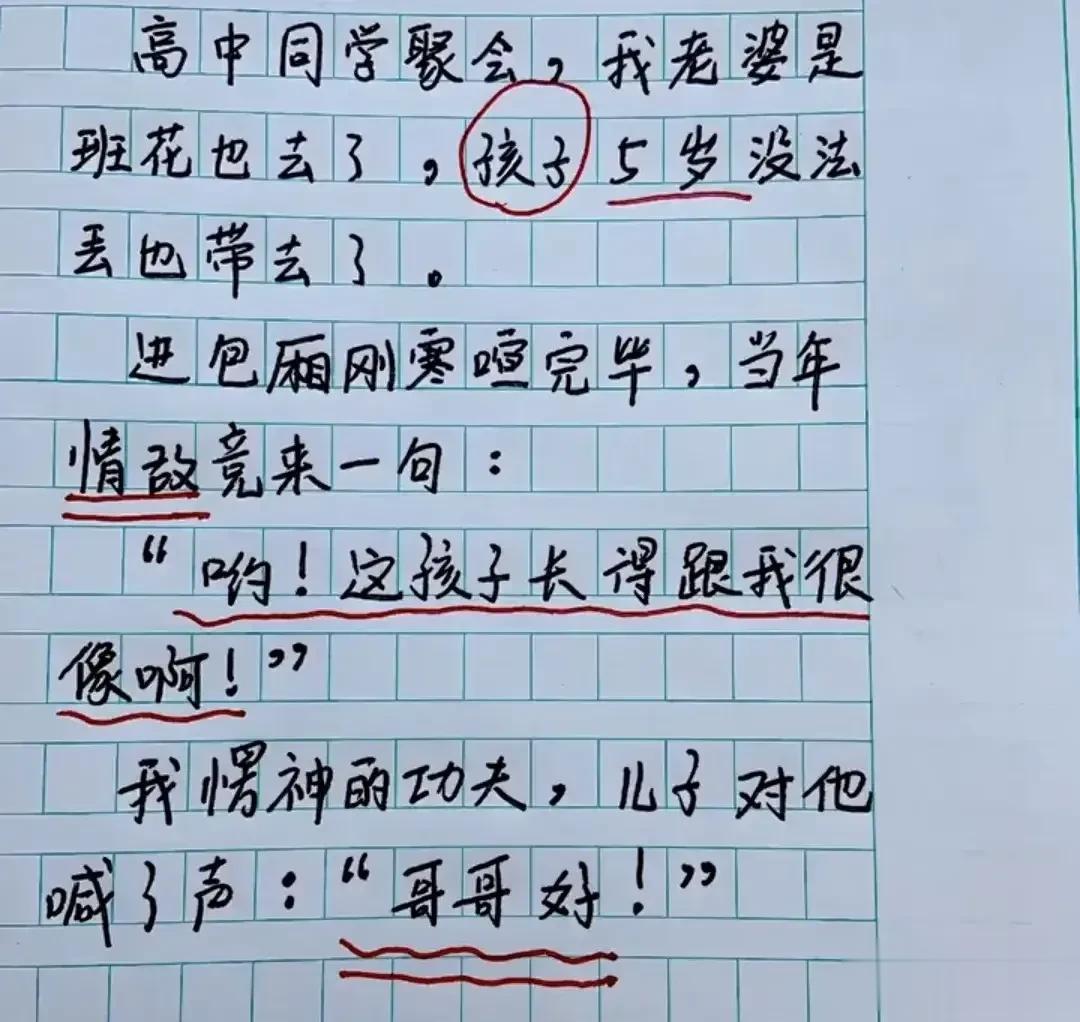 高中同学聚会,我老婆是
班花也去了,孩子5岁没法
丢也带去了。
进包厢刚寒喧完毕,当年
情敌竟来一句:
“哟!这孩子长得跟我很
像啊!”
我愣神的功夫,儿子对他
喊了声:“哥哥好!”